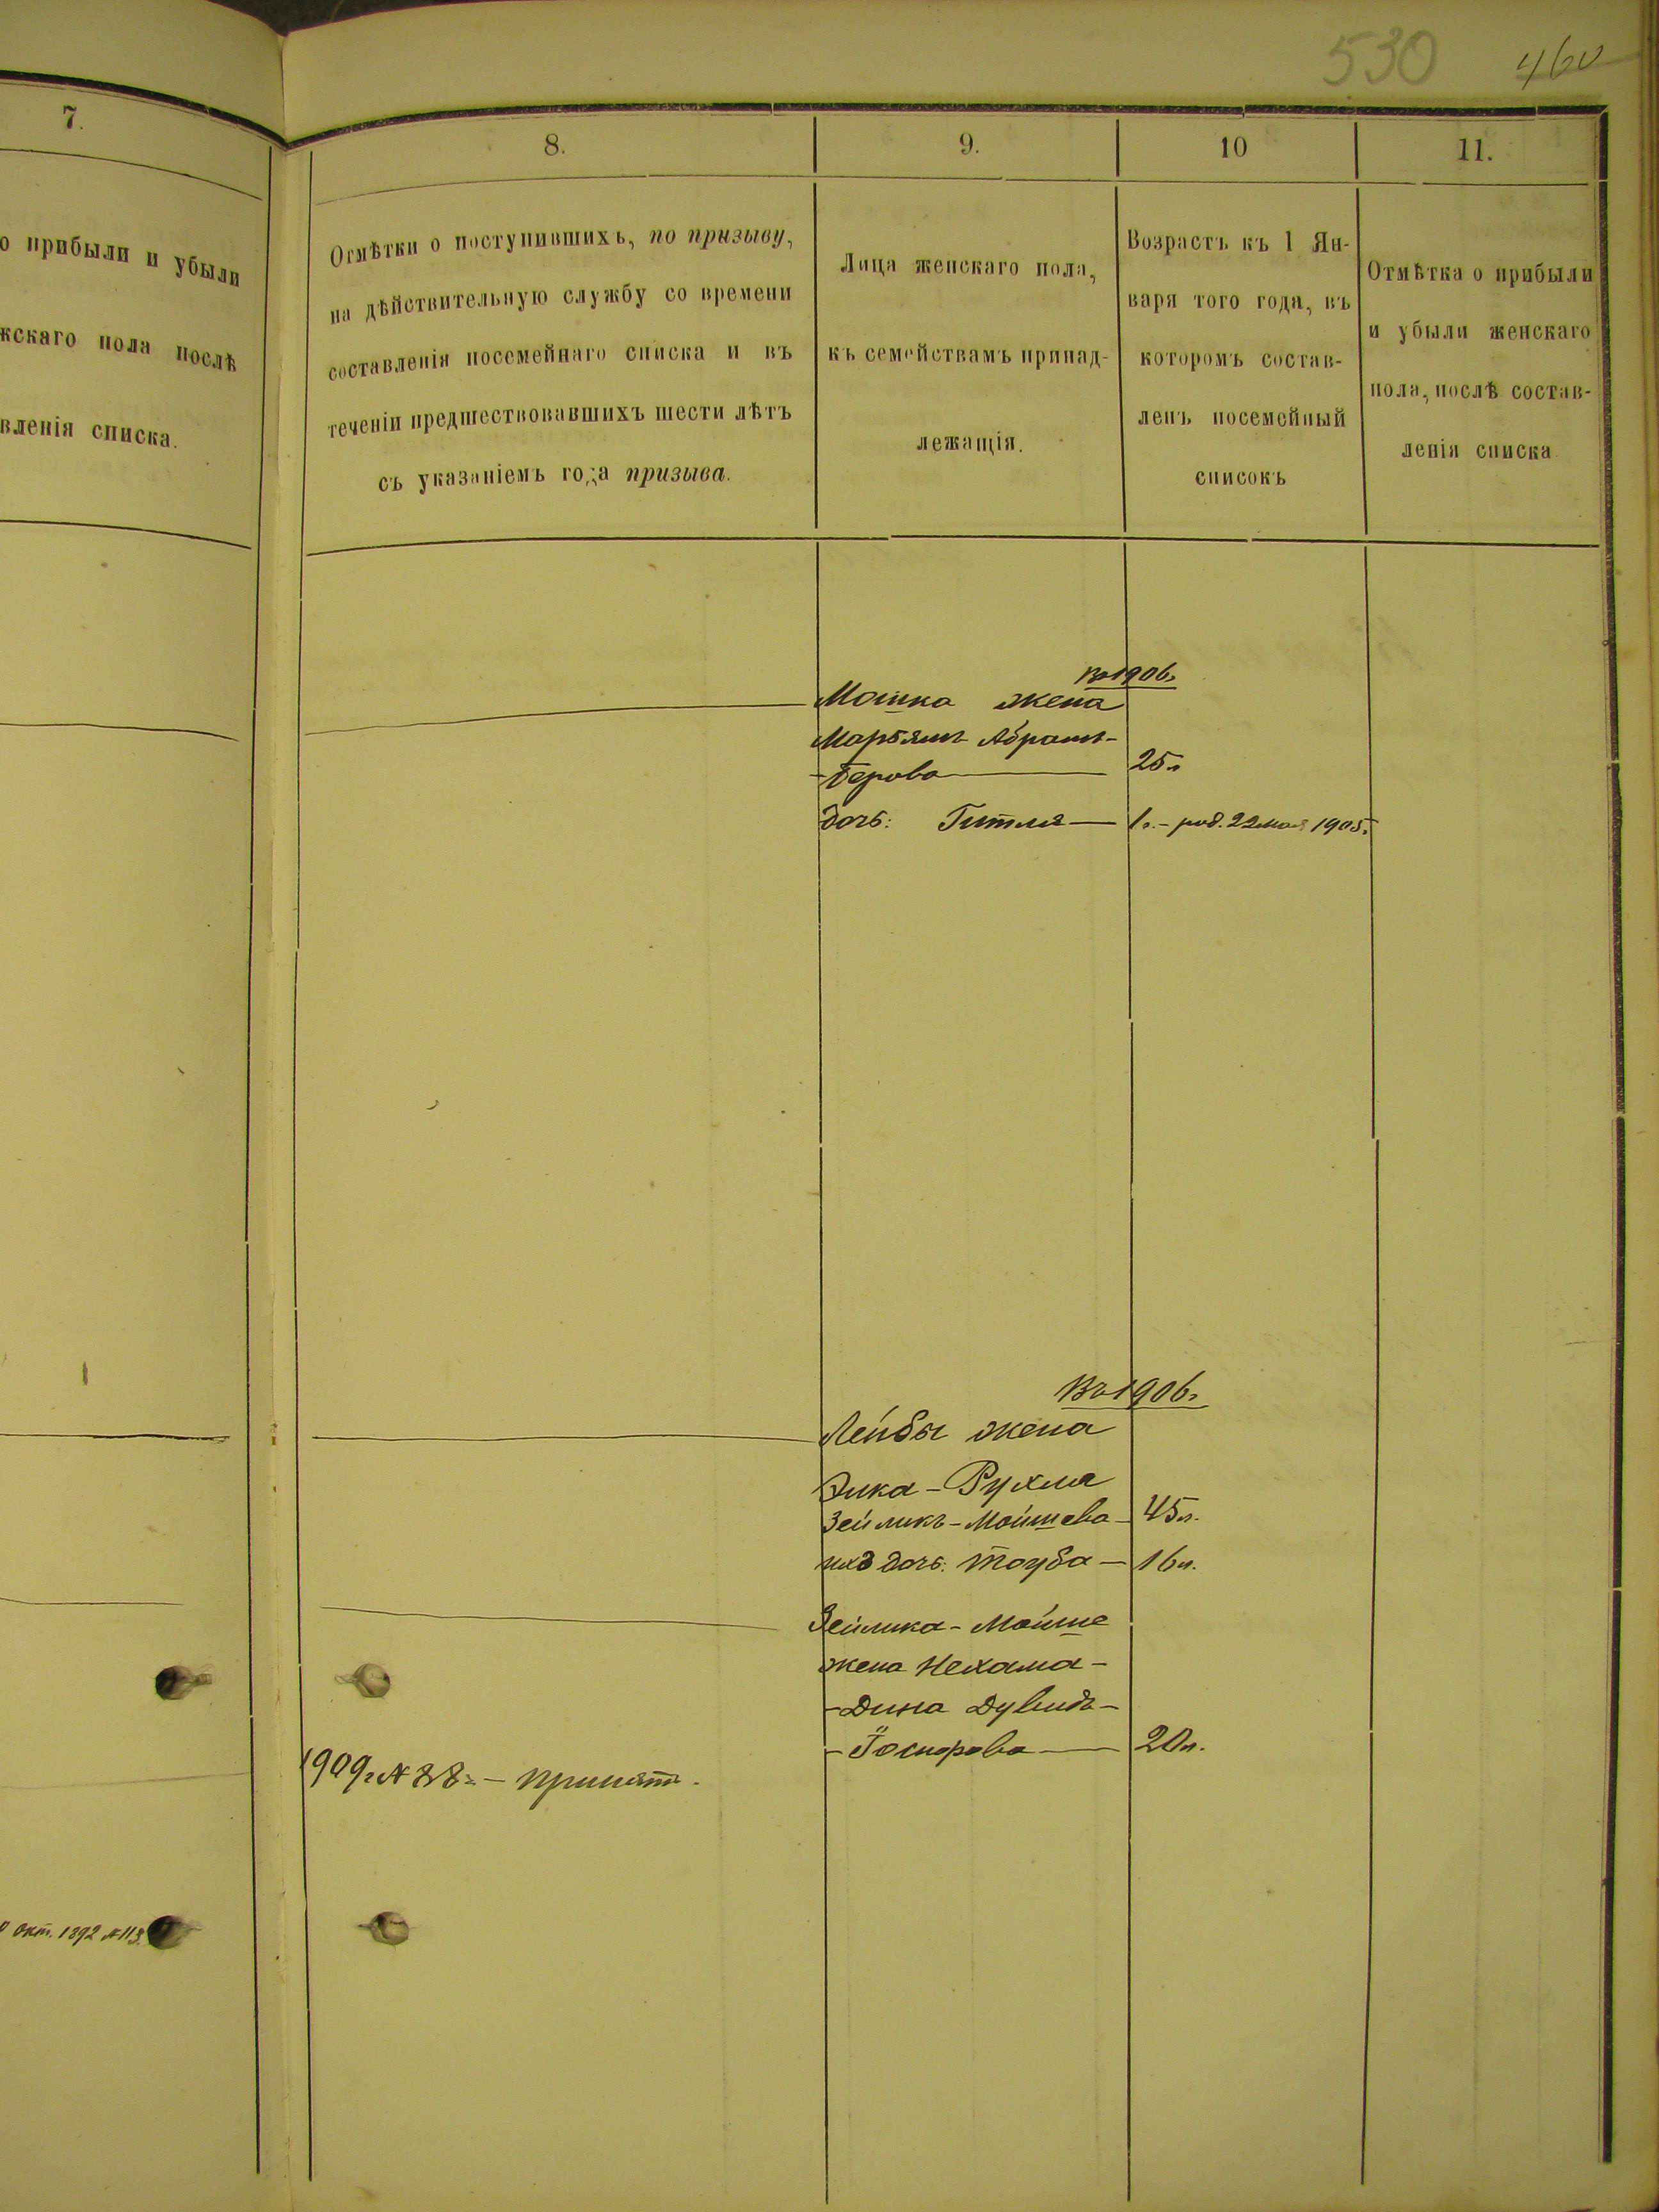 530 460
7.
8.
9.
10
11.
о прибыли и убыли
жскаго пола послѣ
вленія списка.
Отмѣтки о поступившихъ, по призыву,
на дѣйствительную службу со времени
составленія посемейнаго списка и въ
теченіи предшествовавшихъ шести лѣтъ
съ указаніемъ года призыва.
Лица женскаго пола,
къ семействамъ принад-
лежащія.
Возрастъ къ 1 Ян-
варя того года, въ
которомъ состав-
ленъ посемейный
списокъ
Отмѣтка о прибыли
и убыли женскаго
пола, послѣ состав-
ленія списка
Въ 1906г
Мошка жена
Марьямъ Абрамъ-
-Берова — 25л
дочь: Гитля — 1г. - род. 22 мая 1905г
Въ 1906г
Лейбы жена
Элка - Рухля
Зейликъ - Мойшева - 45л.
ихъ дочь: Тауба - 16л.
Зейлика - Мойше
жена Нехама -
- Дина Дувидъ -
- Іосифова — 20л.
1909г № 88 - принятъ.
окт. 1892 №113.